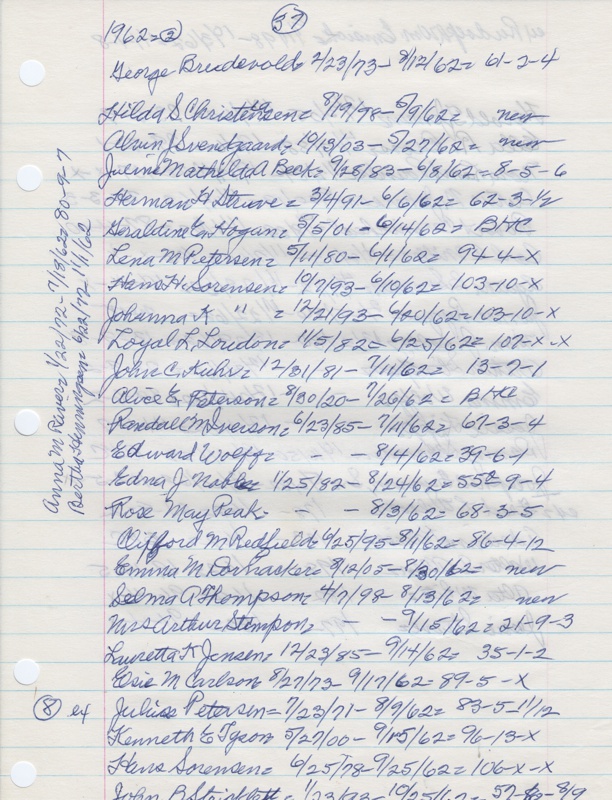 37
1962=②
George Brudevold= 2/23/73- 8/12/62= 61-2-4
Hilda S. Christensen= 8/19/98- 5/9/62= new
Alvin J Svendgaard- 10/13/03- 5/27/62= new
Juline Mathilda A Beck= 9/28/83- 6/8/62= 8-5-6
Herman H Struve= 3/4/91- 6/6/62= 62-3-1/2
Geraldine E. Hogan= 5/5/01- 6/14/62= BHC
Lena M Petersen= 5/11/80- 6/1/62= 94-4-X
Hans H. Sorensen= 10/7/93- 6/10/62= 103-10-X
Johanna K " = 12/21/93- 6/20/62=103-10-X
Loyal L. Loudon= 11/5/82= 6/25/62= 107-X-X
John C. Kuhr= 12/31/81- 7/11/62= 13-7-1
Alice E. Peterson= 8/30/20- 7/26/62= BHC
Randal M Iverson= 6/23/85- 7/11/62= 67-3-4
Edward Wolff= - - 8/4/62= 39-6-1
Edna J Noble 1/25/82- 8/24/62= 55-9-4
Rose May Peak- - - 8/3/62= 68-3-5
Clifford M Redfield= 6/25/95- 8/1/62= 86-4-12
Emma M Dornacker= 8/12/05- 8/30/62= new
Selma A Thompson= 4/7/98- 8/13/62= new
Mrs Arthur Stempon= - - 9/15/62= 21-9-3
Lauretta K Jensen= 12/23/85- 9/14/62= 35-1-2
Elsie M Carlson 8/27/73- 9/17/62= 89-5-X
⑧ ex Julius Petersen= 7/23/71- 8/9/62= 83-5-11/12
Kenneth E Tyson 5/27/00- 9/15/62= 96-13-X
Hans Sorensen= 6/25/78- 9/25/62= 106-X-X
John B 1/23/92- 10/25/62= 57- -8/9
Anna M River= 1/22/72- 7/18/62= 80-9-7
Bertha 6/22/72 11/1/62